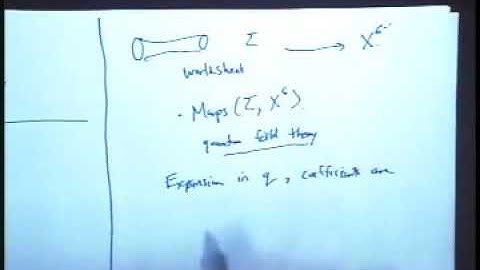 Σ → X⁶
worldsheet
• Maps (Σ, X⁶)
quantum field theory
Expansion in q, coefficients are